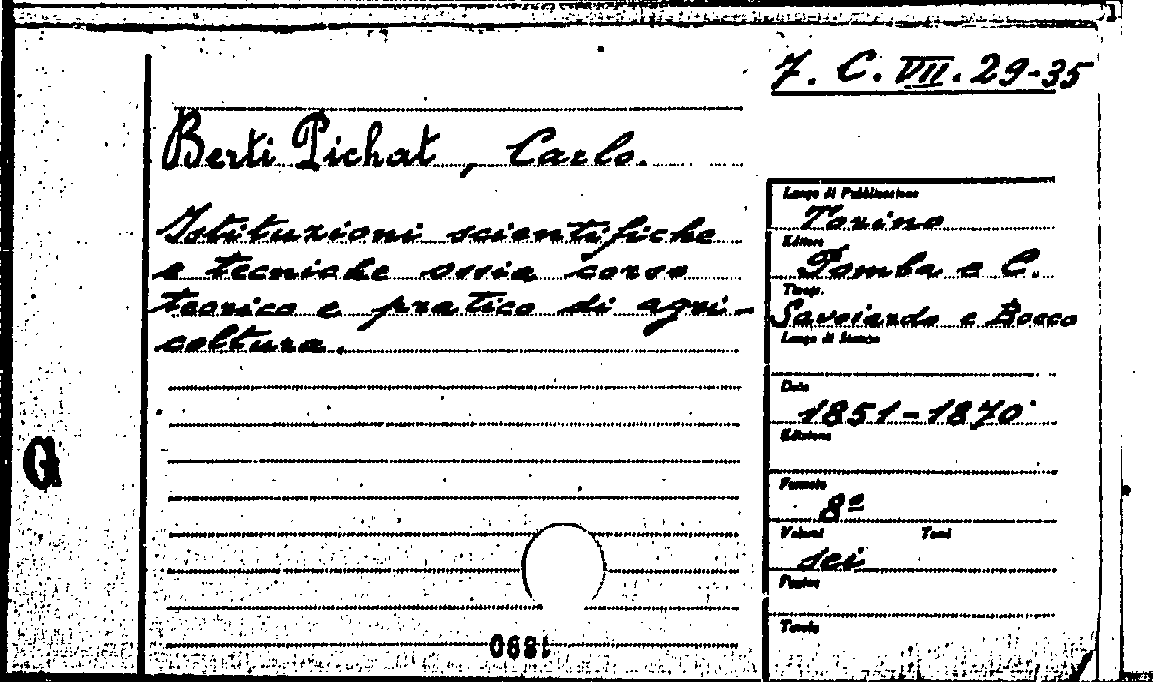 7. C. VII. 29-35
Berti Pichat, Carlo.
Istituzioni scientifiche
e tecniche ossia corso
teorico e pratico di agri-
coltura.
Luogo di Pubblicazione
Torino
Editore
Pomba e C.
Tipogr.
Savoiardo e Bocco
Luogo di Stampa
Data
1851-1870
Edizione
Formato
8º
Volumi Tomi
sei
Pagine
Tavole
1890